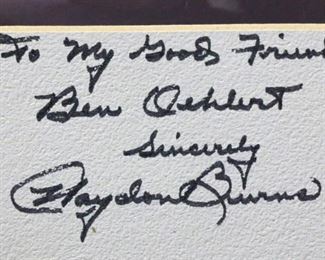 To My Good Friend
Ben Oehlert
Sincerely
Haydon Burns